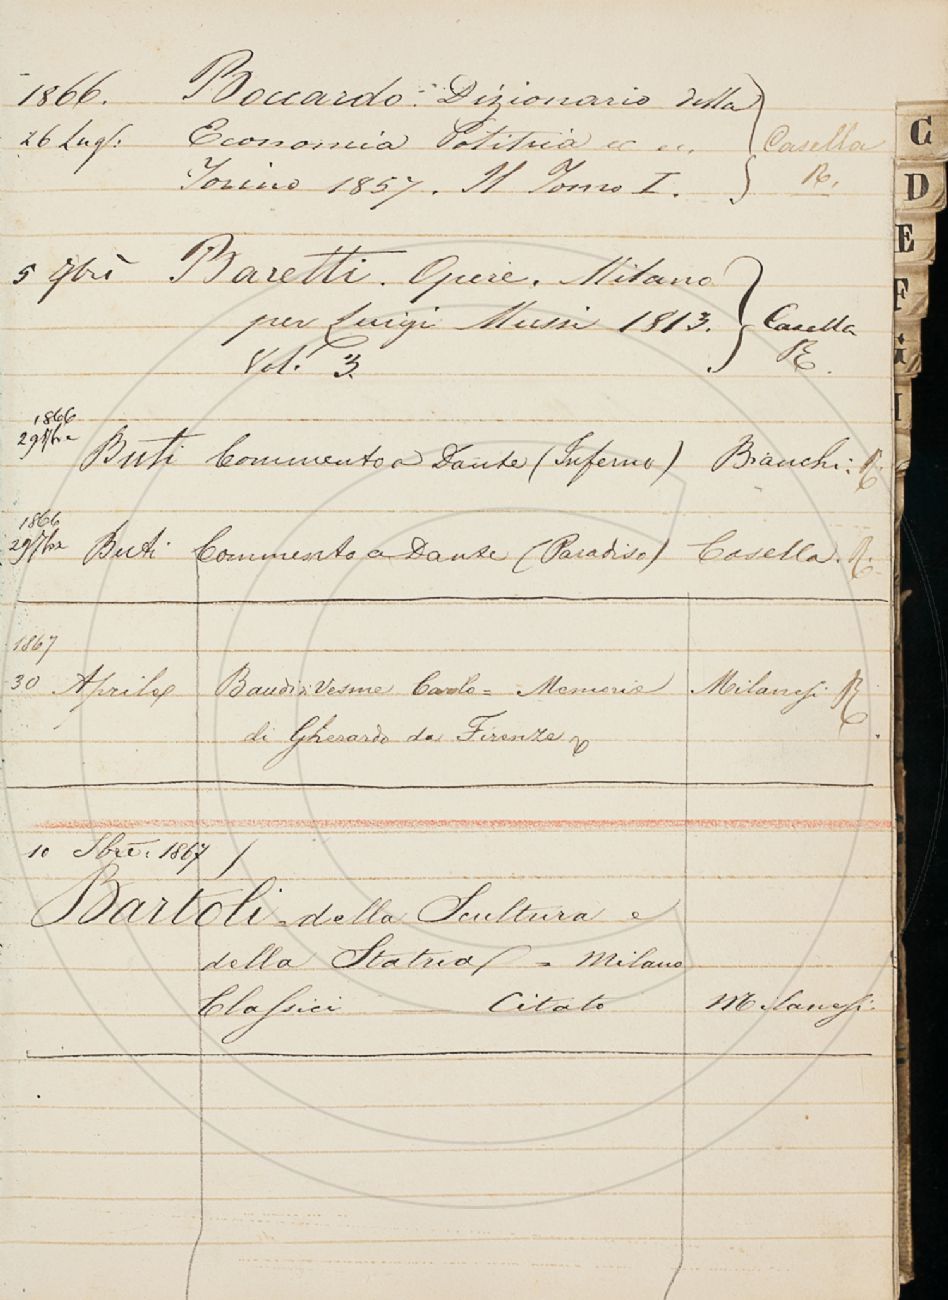 1866. Boccardo. Dizionario della
26 Lugl: Economia Politica ec ec. Casella
Torino 1857. Il Tomo I. R.
5 9bre Baretti. Opere. Milano
per Luigi Mussi 1813. Casella
Vol. 3. R.
1866
29 7bre Buti Commento a Dante (Inferno) Bianchi: R.
1866
29 7bre Buti Commento a Dante (Paradiso) Casella. R.
1867
30 Aprile Baudi di Vesme Carlo = Memorie Milanesi R
di Gherardo da Firenze
10 8bre. 1867
Bartoli = della Scultura e
della Statua = Milano
Classici Citato Milanesi
C
D
E
F
G
I